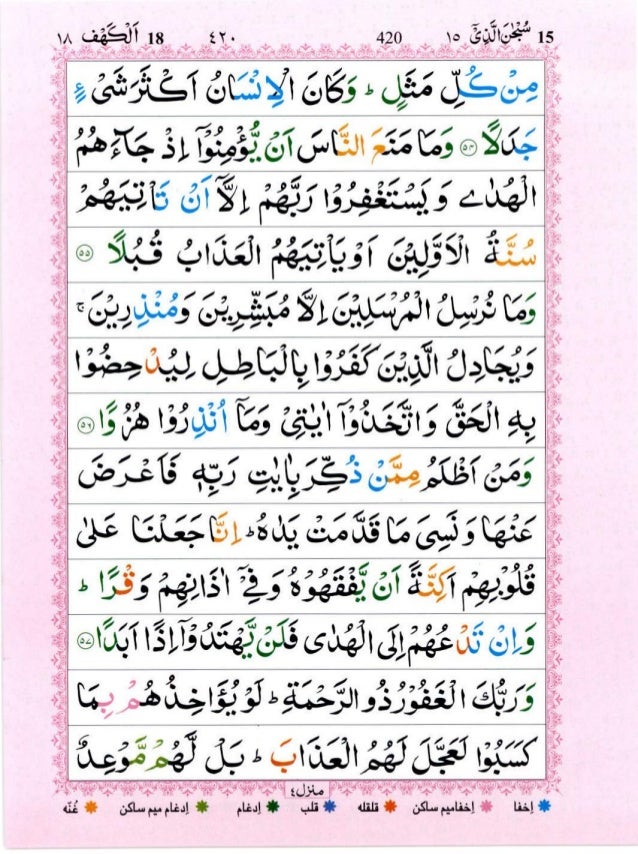 15 سُبْحٰنَ الَّذِيْۤ ١٥ 420 ٤٢٠ 18 اَلْكَهْف ١٨
مِنْ كُلِّ مَثَلٍ ؕ وَكَانَ الْاِنْسَانُ اَكْثَرَ شَیْءٍ
جَدَلًا ﴿٥٤﴾ وَمَا مَنَعَ النَّاسَ اَنْ يُّؤْمِنُوْۤا اِذْ جَآءَهُمُ
الْهُدٰى وَ يَسْتَغْفِرُوْا رَبَّهُمْ اِلَّاۤ اَنْ تَاْتِيَهُمْ
سُنَّةُ الْاَوَّلِيْنَ اَوْ يَاْتِيَهُمُ الْعَذَابُ قُبُلًا ﴿٥٥﴾
وَمَا نُرْسِلُ الْمُرْسَلِيْنَ اِلَّا مُبَشِّرِيْنَ وَمُنْذِرِيْنَ ۚ
وَيُجَادِلُ الَّذِيْنَ كَفَرُوْا بِالْبَاطِلِ لِيُدْحِضُوْا
بِهِ الْحَقَّ وَاتَّخَذُوْۤا اٰيٰتِیْ وَمَاۤ اُنْذِرُوْا هُزُوًا ﴿٥٦﴾
وَمَنْ اَظْلَمُ مِمَّنْ ذُكِّرَ بِاٰيٰتِ رَبِّهٖ فَاَعْرَضَ
عَنْهَا وَنَسِیَ مَا قَدَّمَتْ يَدٰهُ ؕ اِنَّا جَعَلْنَا عَلٰى
قُلُوْبِهِمْ اَكِنَّةً اَنْ يَّفْقَهُوْهُ وَفِیْۤ اٰذَانِهِمْ وَقْرًا ؕ
وَاِنْ تَدْعُهُمْ اِلَى الْهُدٰى فَلَنْ يَّهْتَدُوْۤا اِذًا اَبَدًا ﴿٥٧﴾
وَرَبُّكَ الْغَفُوْرُ ذُو الرَّحْمَةِ ؕ لَوْ يُؤَاخِذُهُمْ بِمَا
كَسَبُوْا لَعَجَّلَ لَهُمُ الْعَذَابَ ؕ بَلْ لَّهُمْ مَّوْعِدٌ
منزل ٤
اِخفا اِخفامیم ساکن قلقله قلب اِدغام اِدغام میم ساکن غُنّه